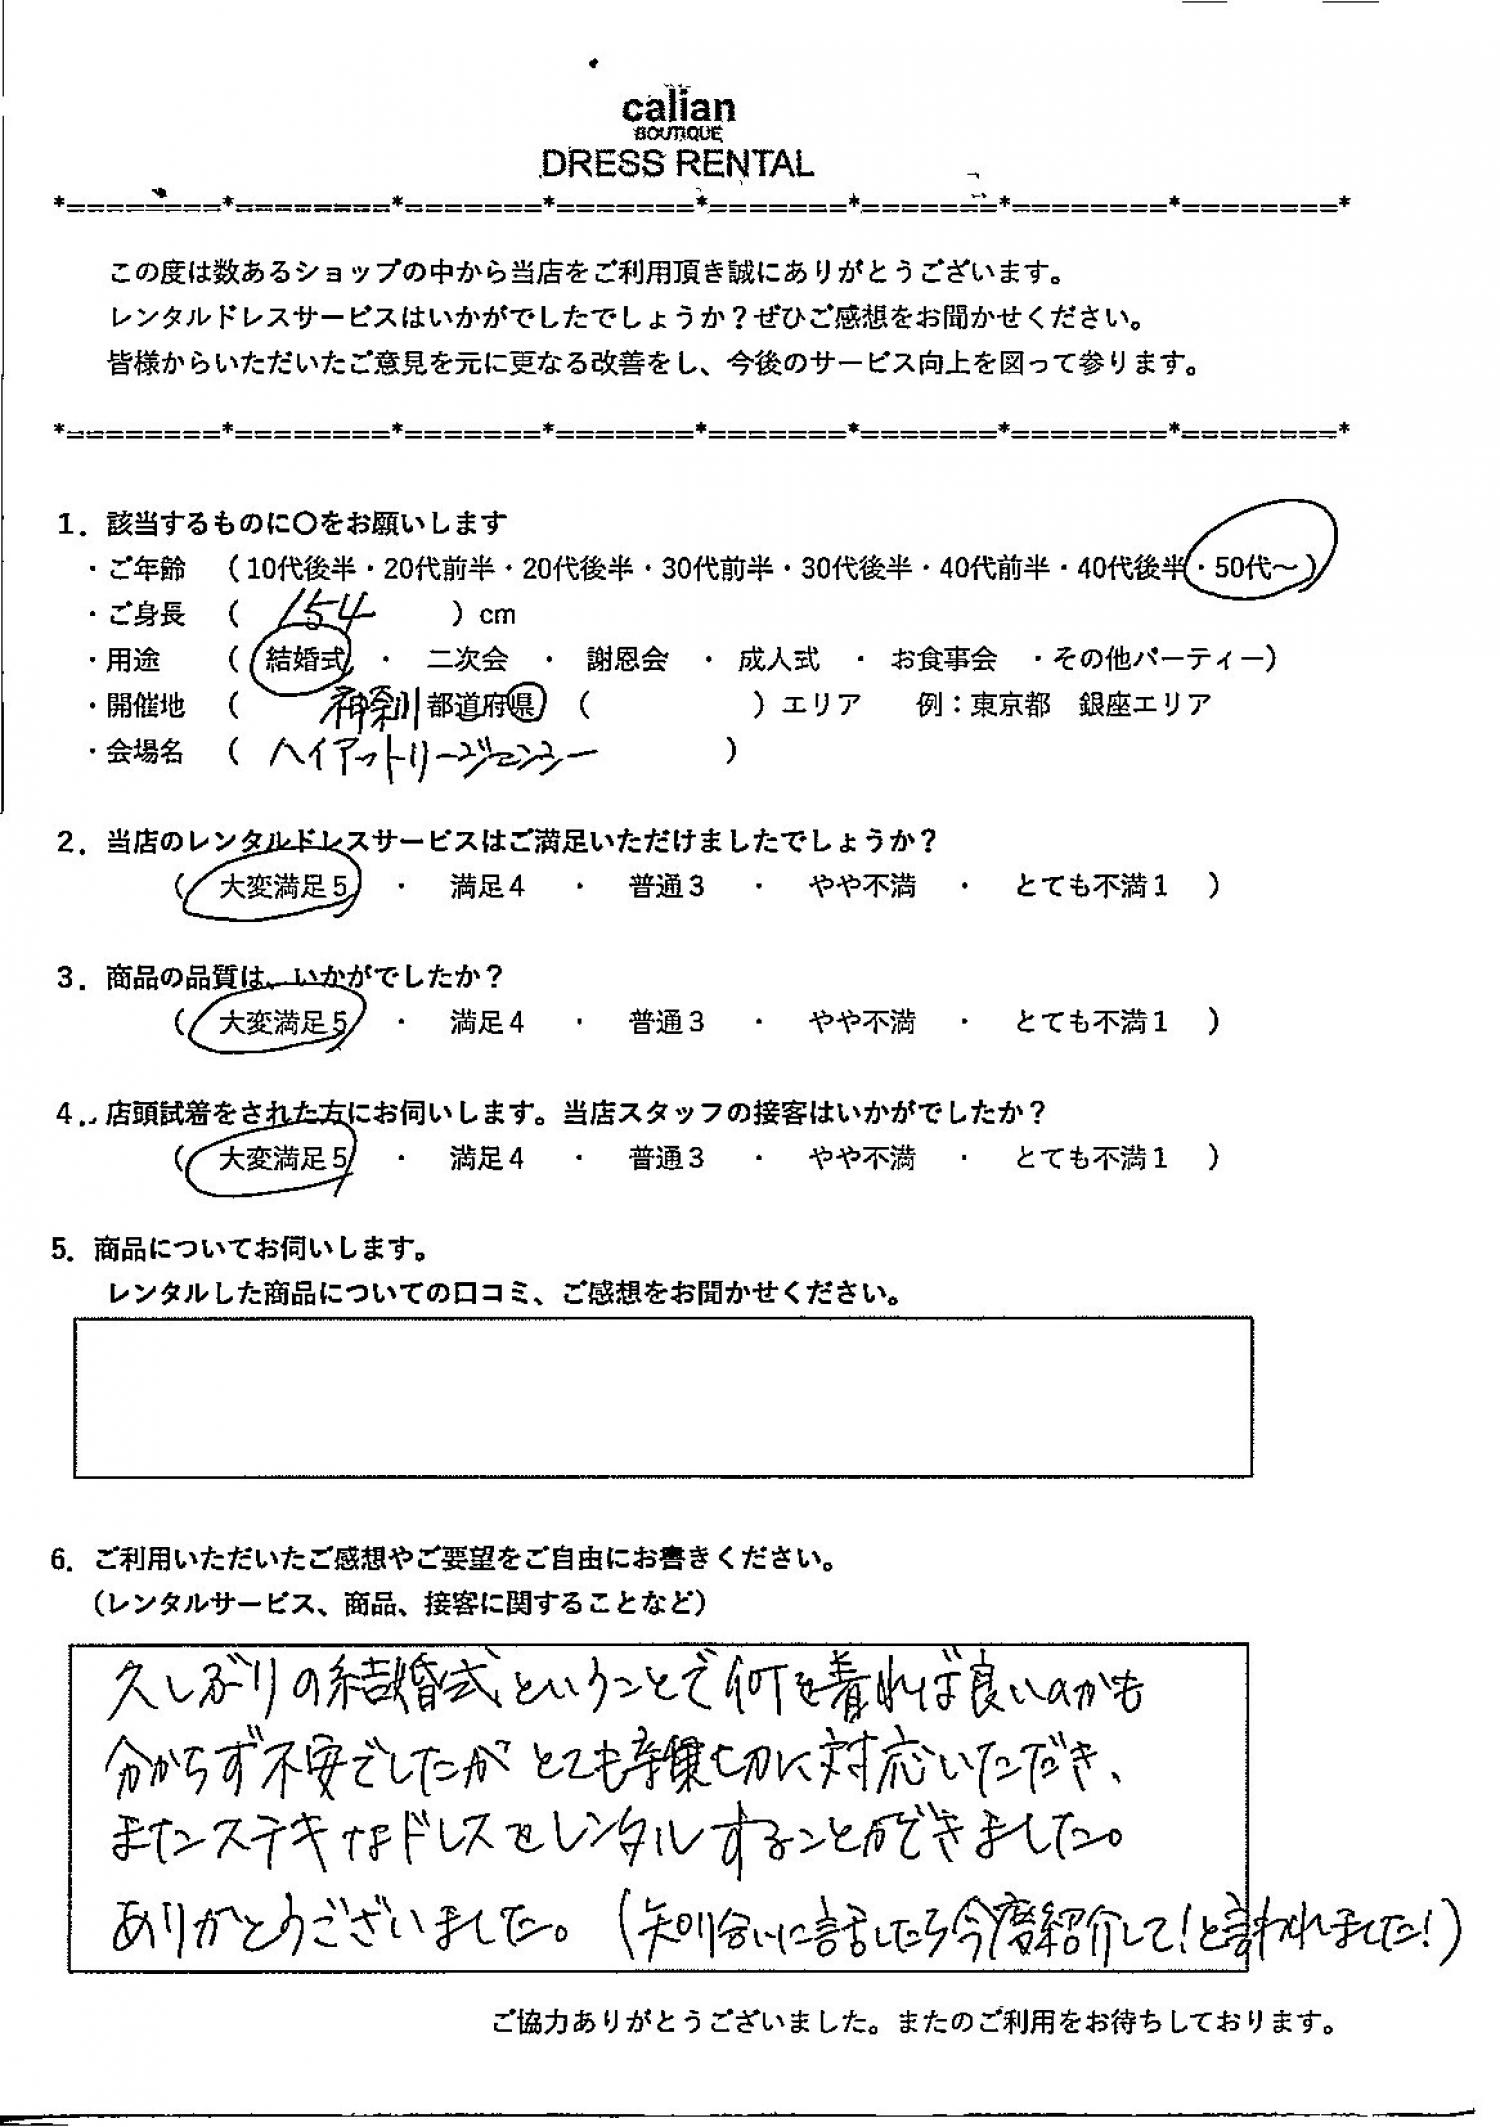 calian
BOUTIQUE
DRESS RENTAL
*========*========*=======*=======*=======*=======*========*========*
この度は数あるショップの中から当店をご利用頂き誠にありがとうございます。
レンタルドレスサービスはいかがでしたでしょうか？ぜひご感想をお聞かせください。
皆様からいただいたご意見を元に更なる改善をし、今後のサービス向上を図って参ります。
*========*========*=======*=======*=======*=======*========*========*
1．該当するものに〇をお願いします
・ご年齢　（10代後半・20代前半・20代後半・30代前半・30代後半・40代前半・40代後半・50代～）
・ご身長　（　154　）cm
・用途　（　結婚式　・　二次会　・　謝恩会　・　成人式　・　お食事会　・その他パーティー）
・開催地　（　神奈川　都道府県　（　　　）エリア　例：東京都　銀座エリア
・会場名　（　ハイアットリージェンシー　）
2．当店のレンタルドレスサービスはご満足いただけましたでしょうか？
（　大変満足５　・　満足４　・　普通３　・　やや不満　・　とても不満１　）
3．商品の品質は、いかがでしたか？
（　大変満足５　・　満足４　・　普通３　・　やや不満　・　とても不満１　）
4．店頭試着をされた方にお伺いします。当店スタッフの接客はいかがでしたか？
（　大変満足５　・　満足４　・　普通３　・　やや不満　・　とても不満１　）
5．商品についてお伺いします。
レンタルした商品についての口コミ、ご感想をお聞かせください。
6．ご利用いただいたご感想やご要望をご自由にお書きください。
（レンタルサービス、商品、接客に関することなど）
久しぶりの結婚式ということで何を着れば良いのかも
分からず不安でしたが とても親切に対応いただき、
またステキなドレスをレンタルすることができました。
ありがとうございました。（知り合いに話したら今度紹介して！と言われました！）
ご協力ありがとうございました。またのご利用をお待ちしております。